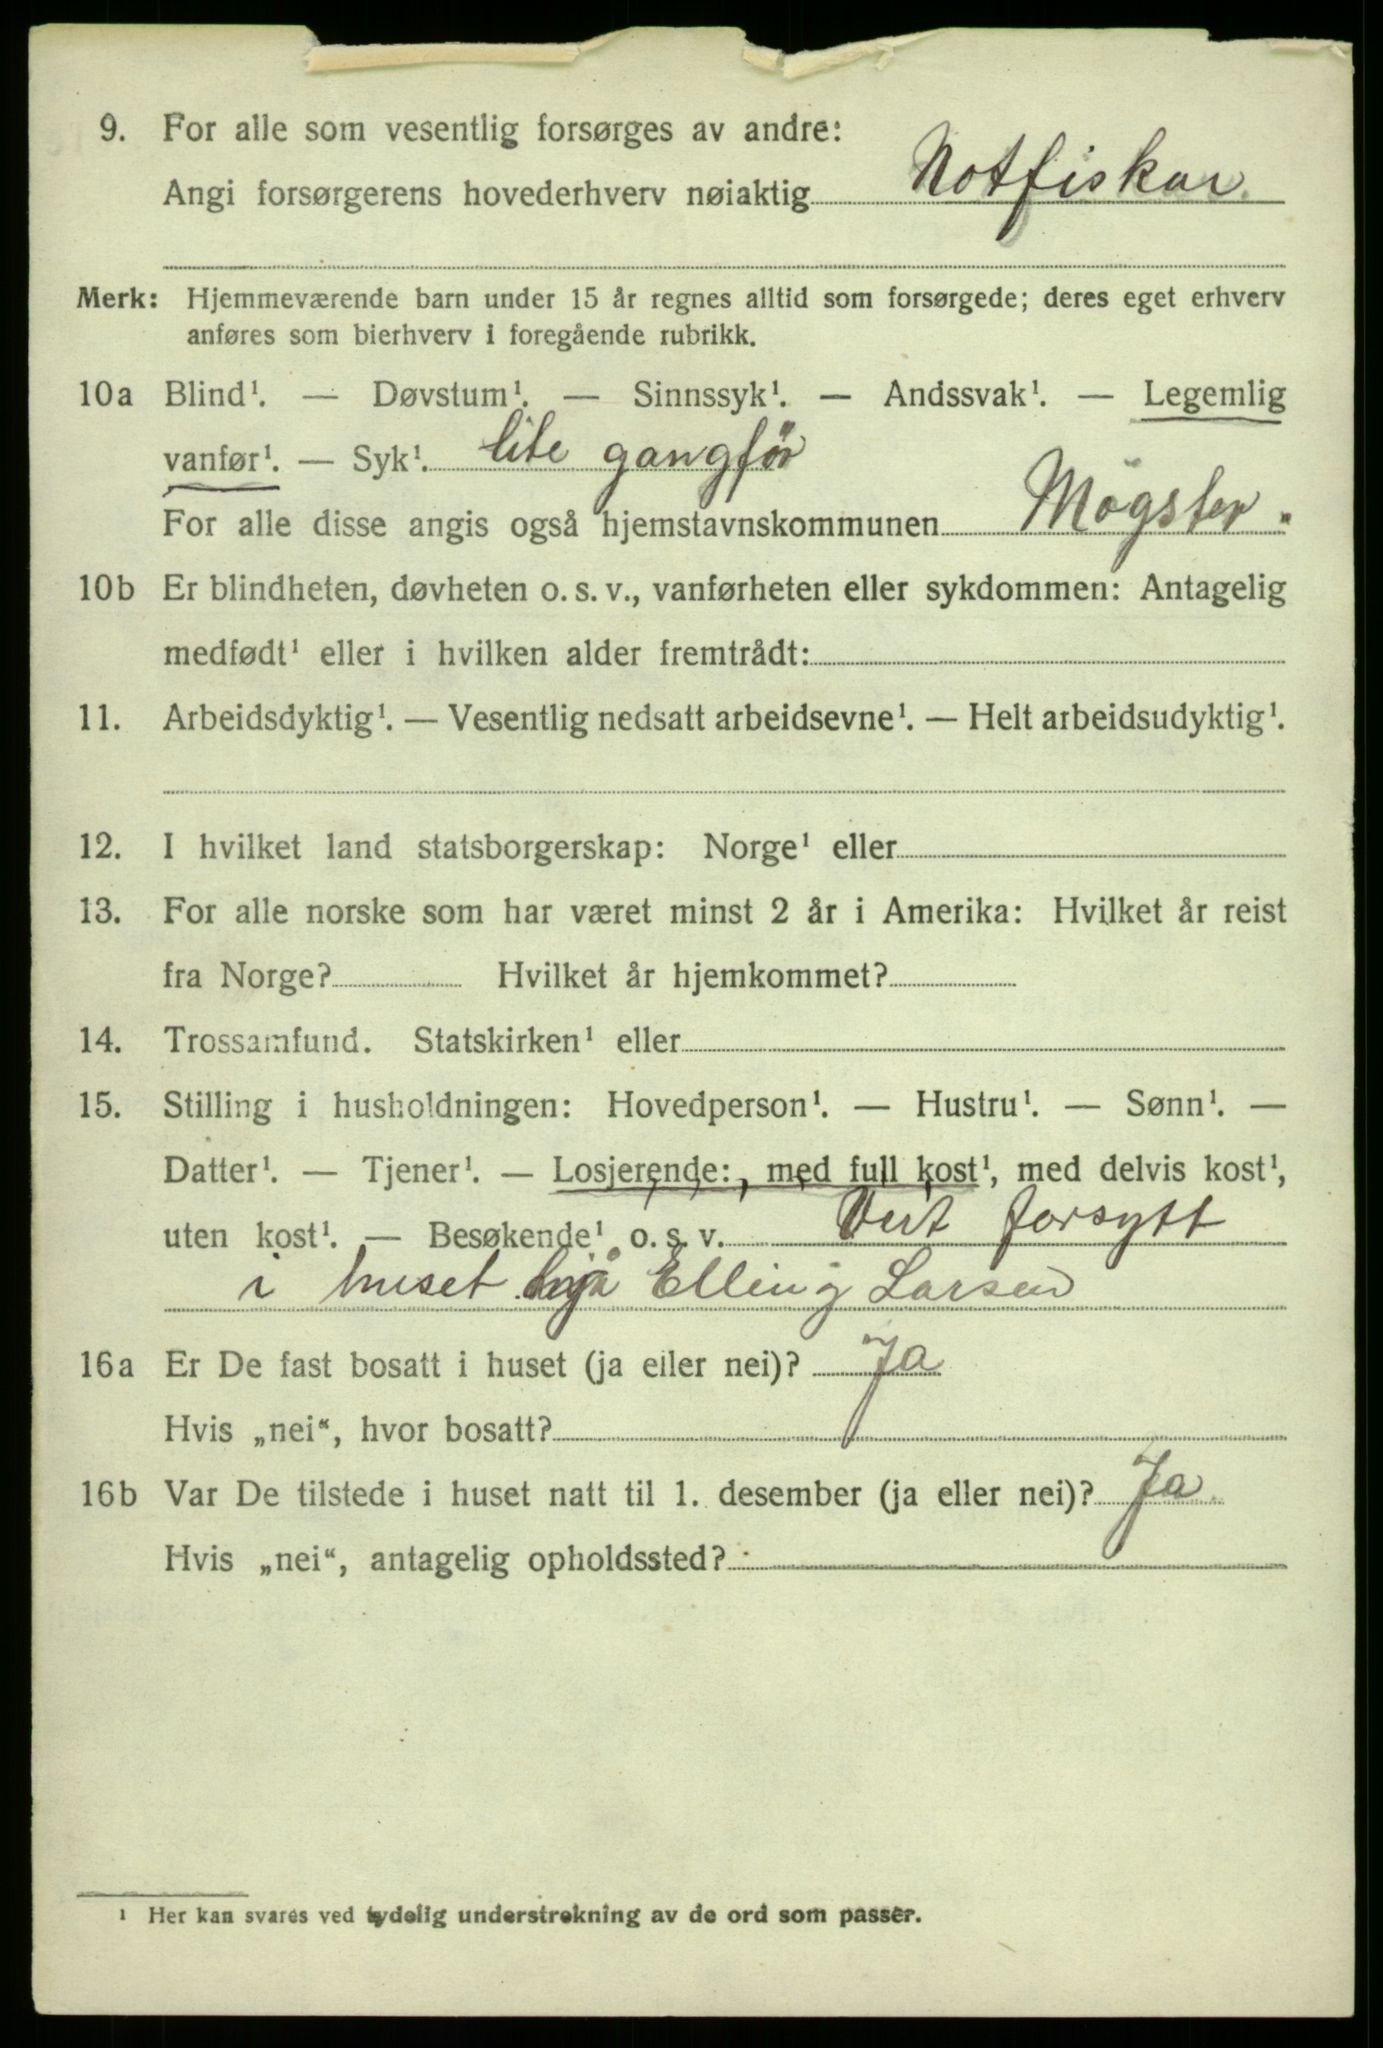 9. For alle som vesentlig forsørges av andre:
Angi forsørgerens hovederhverv nøiaktig Notfiskar.
Merk: Hjemmeværende barn under 15 år regnes alltid som forsørgede; deres eget erhverv
anføres som bierhverv i foregående rubrikk.
10a Blind¹. — Døvstum¹. — Sinnssyk¹. — Andssvak¹. — Legemlig
vanfør¹. — Syk¹. lite gangför
For alle disse angis også hjemstavnskommunen Møgster.
10b Er blindheten, døvheten o. s. v., vanførheten eller sykdommen: Antagelig
medfødt¹ eller i hvilken alder fremtrådt:
11. Arbeidsdyktig¹. — Vesentlig nedsatt arbeidsevne¹. — Helt arbeidsudyktig¹.
12. I hvilket land statsborgerskap: Norge¹ eller
13. For alle norske som har været minst 2 år i Amerika: Hvilket år reist
fra Norge? Hvilket år hjemkommet?
14. Trossamfund. Statskirken¹ eller
15. Stilling i husholdningen: Hovedperson¹. — Hustru¹. — Sønn¹. —
Datter¹. — Tjener¹. — Losjerende:, med full kost¹, med delvis kost¹,
uten kost¹. — Besøkende¹ o. s. v. Vert forsytt
i huset hjå Elling Larsen
16a Er De fast bosatt i huset (ja eller nei)? Ja
Hvis „nei“, hvor bosatt?
16b Var De tilstede i huset natt til 1. desember (ja eller nei)? Ja.
Hvis „nei“, antagelig opholdssted?
¹ Her kan svares ved tydelig understrekning av de ord som passer.